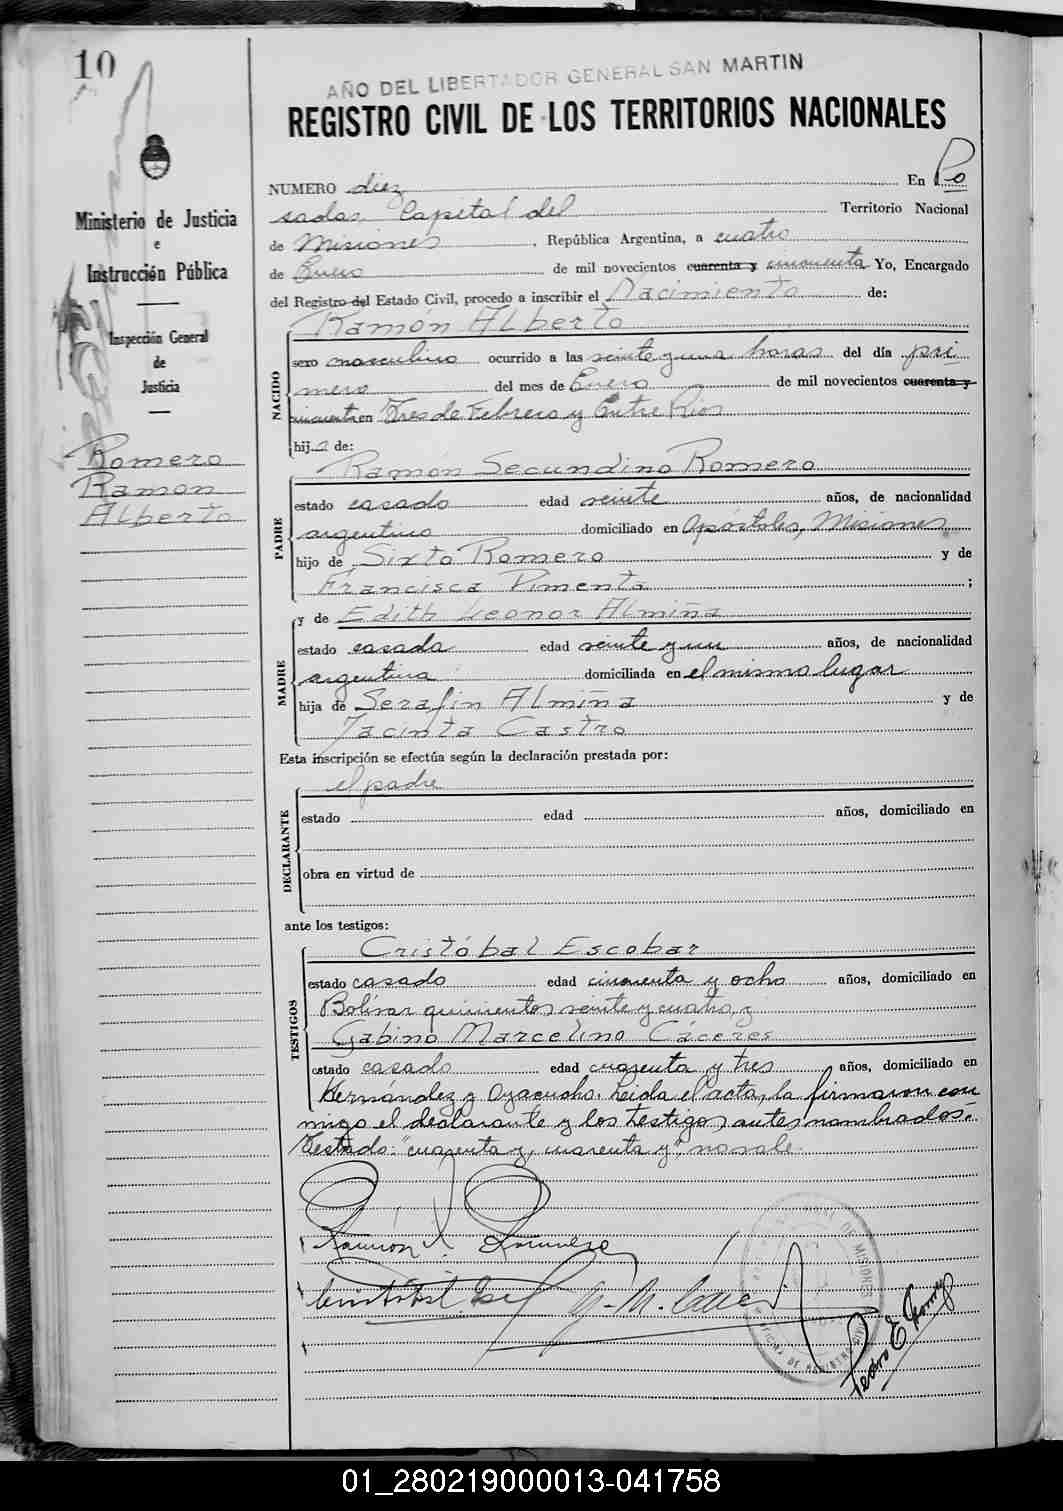 10
AÑO DEL LIBERTADOR GENERAL SAN MARTIN
REGISTRO CIVIL DE LOS TERRITORIOS NACIONALES
Ministerio de Justicia
e
Instrucción Pública
Inspección General
de
Justicia
Romero
Ramon
Alberto
NUMERO diez En Po
sadas, Capital del Territorio Nacional
de Misiones, República Argentina, a cuatro
de Enero de mil novecientos cuarenta y cincuenta Yo, Encargado
del Registro del Estado Civil, procedo a inscribir el Nacimiento de:
Ramón Alberto
NACIDO
sexo masculino ocurrido a las veinte y una horas del día pri
mero del mes de Enero de mil novecientos cuarenta y
cincuenta en Tres de Febrero y Entre Rios
hijo de:
Ramón Secundino Romero
PADRE
estado casado edad veinte años, de nacionalidad
argentino domiciliado en Apóstoles, Misiones
hijo de Sixto Romero y de
Francisca Pimenta ;
y de Edith Leonor Almiña
MADRE
estado casada edad veinte y un años, de nacionalidad
argentina domiciliada en el mismo lugar
hija de Serafin Almiña y de
Jacinta Castro
Esta inscripción se efectúa según la declaración prestada por:
el padre
DECLARANTE
estado edad años, domiciliado en
obra en virtud de
ante los testigos:
Cristóbal Escobar
TESTIGOS
estado casado edad cincuenta y ocho años, domiciliado en
Bolívar quinientos veinte y cuatro, y
Gabino Marcelino Cáceres
estado casado edad cuarenta y tres años, domiciliado en
Hernández y Ayacucho. Leida el acta, la firmaron con
migo el declarante y los testigos antes nombrados.-
Testado: "cuarenta y, cuarenta y", no vale.
Ramón S. Romero
Cristóbal Esc
G. M. Cáceres
DE MISIONES
OFICINA DE REGISTRO CIVIL
Pedro E.
01_280219000013-041758